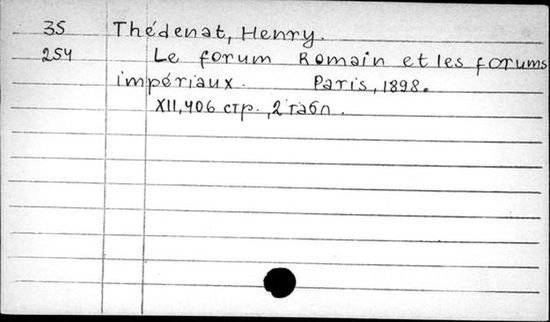 35 Thédenat, Henry.
254 Le forum Romain et les forums
impériaux. Paris, 1898.
XII, 406 стр., 2 табл.